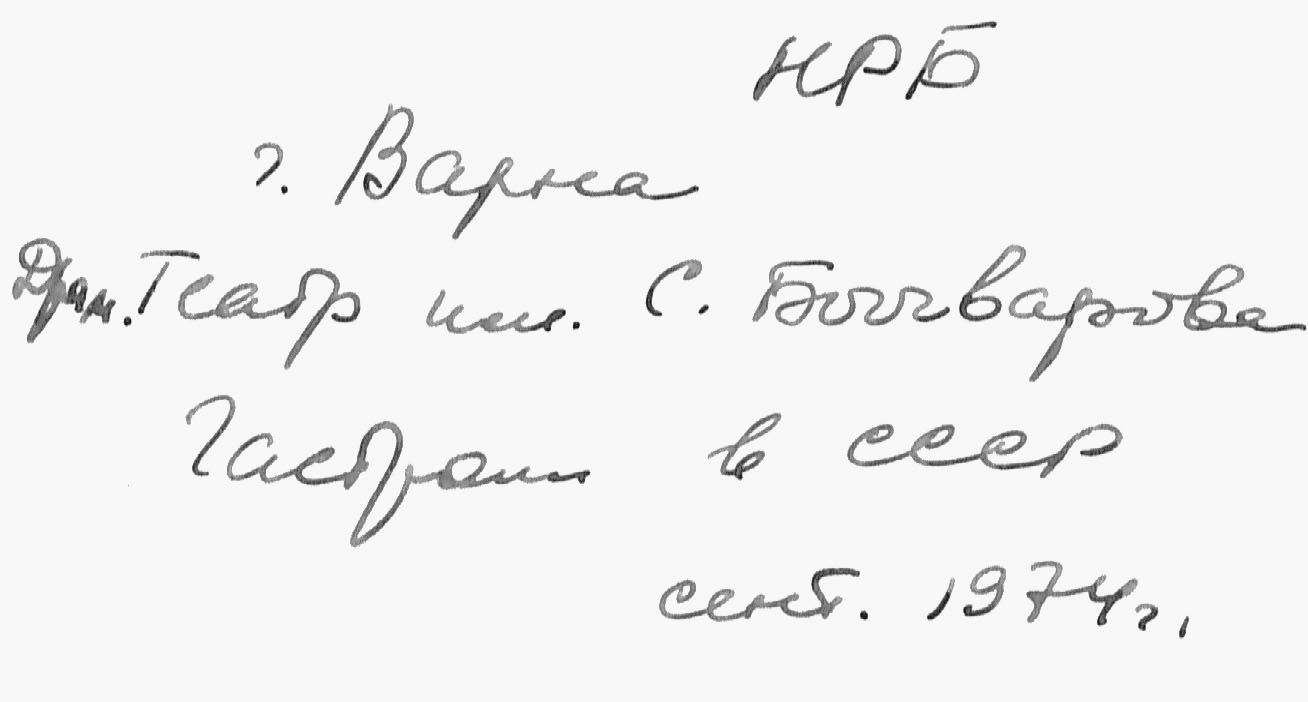 НРБ
г. Варна
Драм. Театр им. С. Бочварова
Гастроли в СССР
сент. 1974 г.